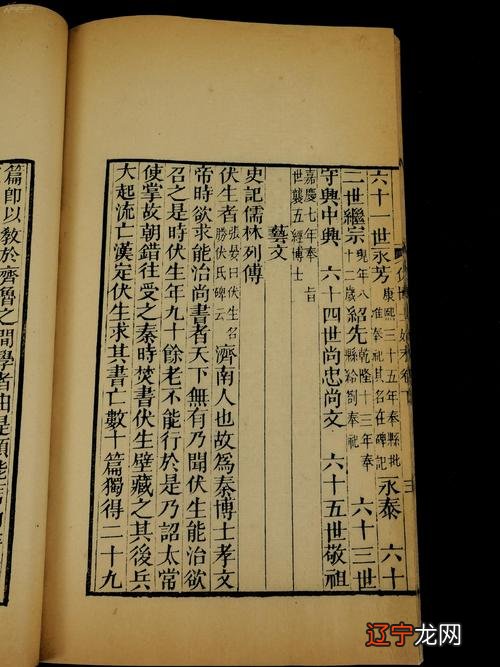 六十一世永芳康熙三十五年奉縣批准奉祀其名在碑記永泰 六十
二世繼宗現年八十二歲紹先乾隆十三年奉縣給劄奉祀 六十三世
守興中興 六十四世尚忠尚文 六十五世敬祖
嘉慶七年奉旨
世襲五經博士
藝文
史記儒林列傳
伏生者張晏曰伏生名勝伏氏碑云濟南人也故爲秦博士孝文
帝時欲求能治尚書者天下無有乃聞伏生能治欲
召之是時伏生年九十餘老不能行於是乃詔太常
使掌故朝錯往受之秦時焚書伏生壁藏之其後兵
大起流亡漢定伏生求其書亡數十篇獨得二十九
篇卽以敎於齊魯之間學者由是頗能言
辽宁龙网